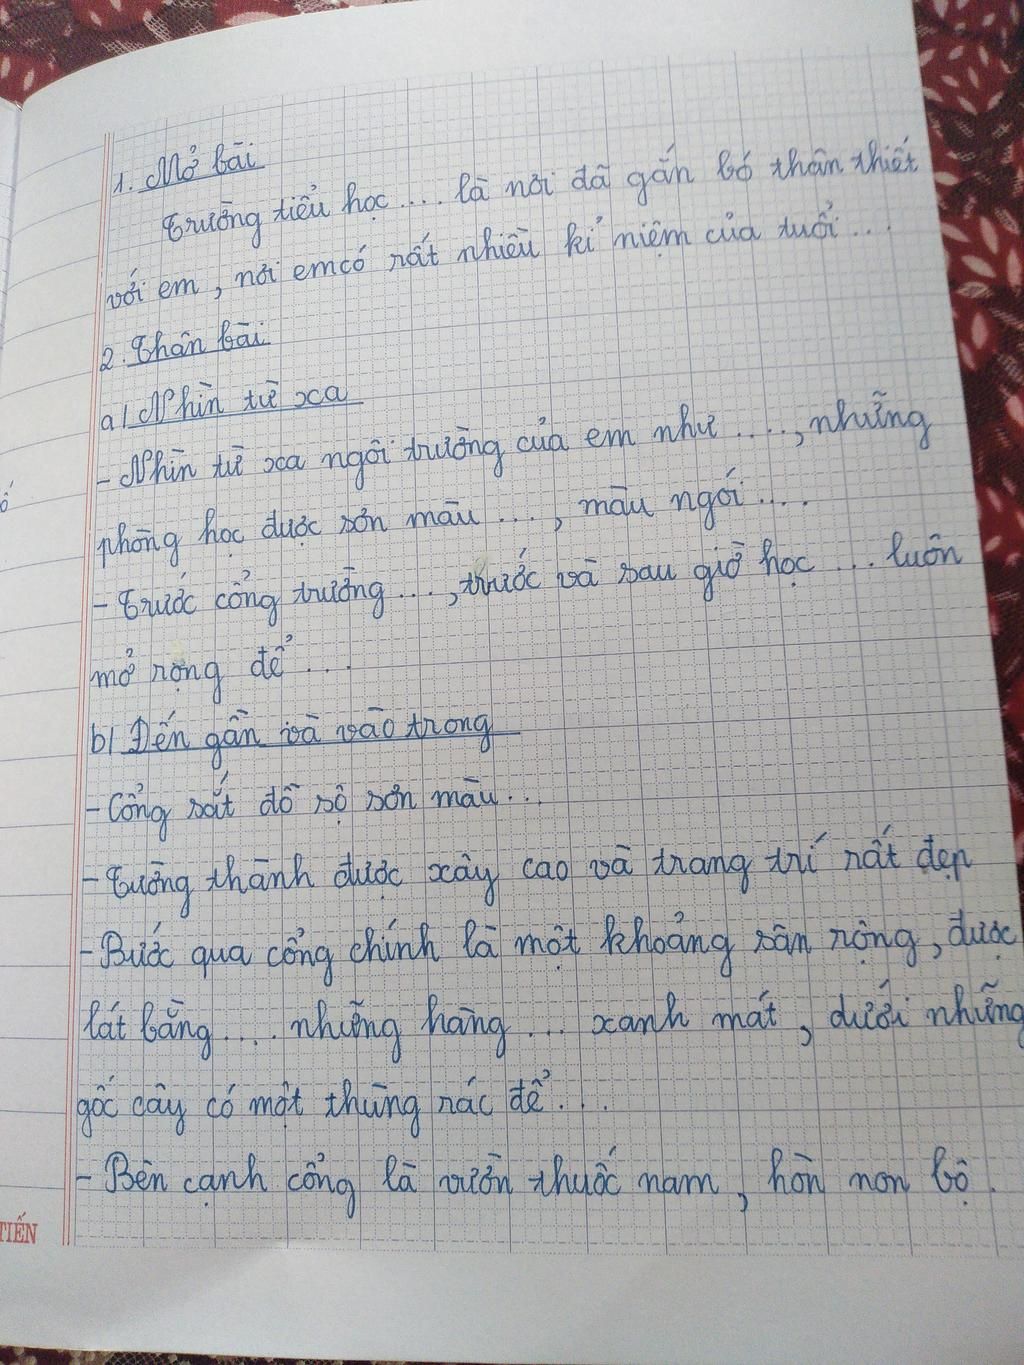 1. Mở bài
Trường tiểu học .... là nơi đã gắn bó thân thiết
với em, nơi em có rất nhiều kỉ niệm của tuổi ...
2. Thân bài
a/ Nhìn từ xa
- Nhìn từ xa ngôi trường của em như ...., những
phòng học được sơn màu ..., màu ngói ....
- Trước cổng trường ..., trước và sau giờ học ... luôn
mở rộng để ...
b/ Đến gần và vào trong
- Cổng sắt đồ sộ sơn màu...
- Tường thành được xây cao và trang trí rất đẹp
- Bước qua cổng chính là một khoảng sân rộng, được
lát bằng .... những hàng ... xanh mát, dưới những
gốc cây có một thùng rác để ...
- Bên cạnh cổng là vườn thuốc nam, hòn non bộ.
TIẾN